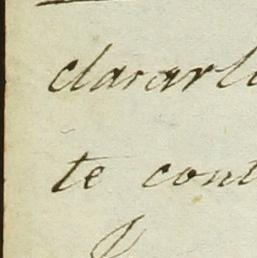 clararl
te cont